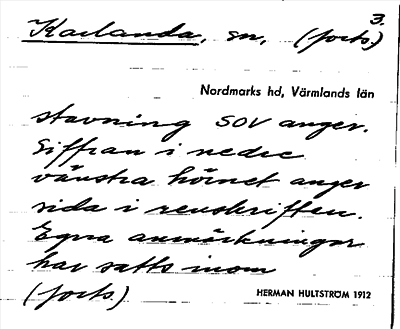 3.
Karlanda, sn, (forts.)
Nordmarks hd, Värmlands län
stavning SOV anger.
Siffran i nedre
vänstra hörnet anger
sida i renskriften.
Egna anmärkningar
har satts inom
(forts.)
HERMAN HULTSTRÖM 1912